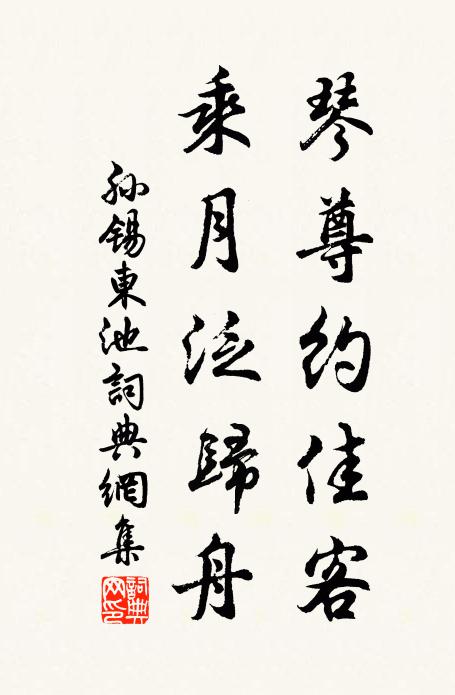 琴尊約佳客
乘月泛歸舟
孫錫東池詞典網集
詞典网印